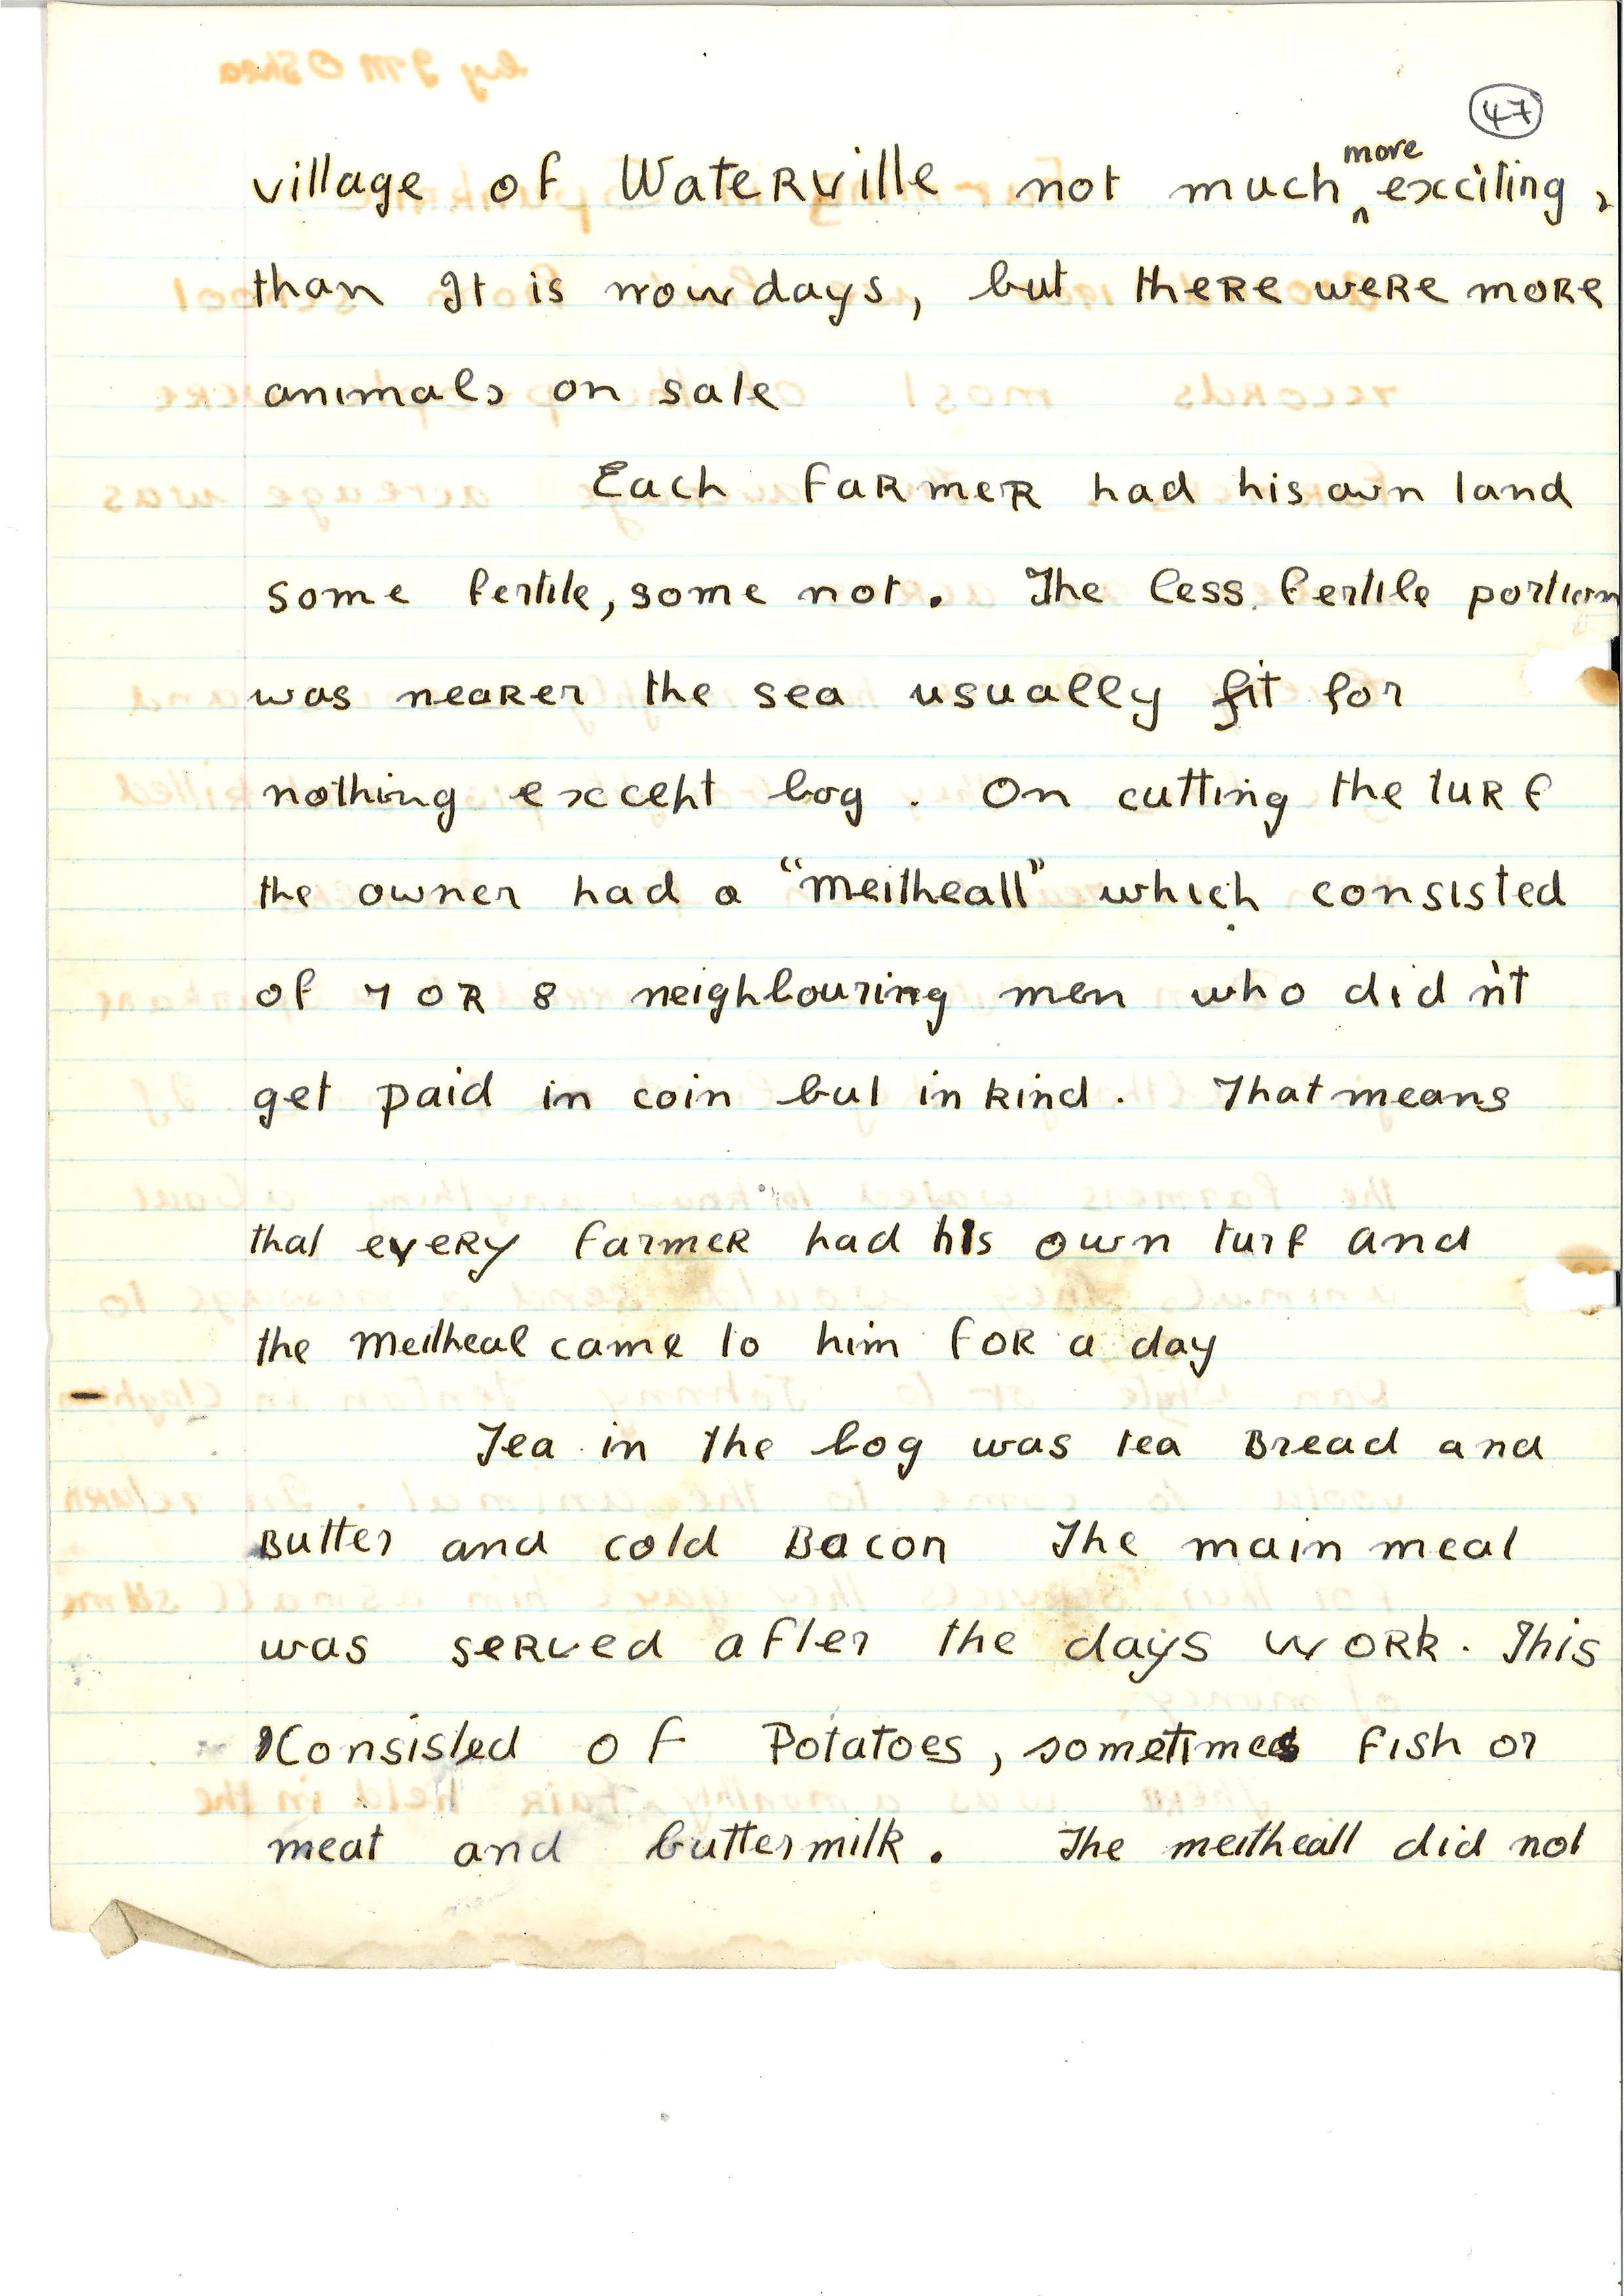 47
village of Waterville not much more exciting,
than It is nowdays, but there were more
animals on sale
Each farmer had his own land
some fertile, some not. The less fertile portion
was nearer the sea usually fit for
nothing except bog. On cutting the turf
the owner had a "meitheall" which consisted
of 7 OR 8 neighbouring men who did n't
get paid in coin but in kind. That means
that every farmer had his own turf and
the meitheal came to him for a day
Tea in the bog was tea Bread and
Butter and cold Bacon The main meal
was served after the days work. This
Consisted of Potatoes, sometimes fish or
meat and buttermilk. The meitheall did not